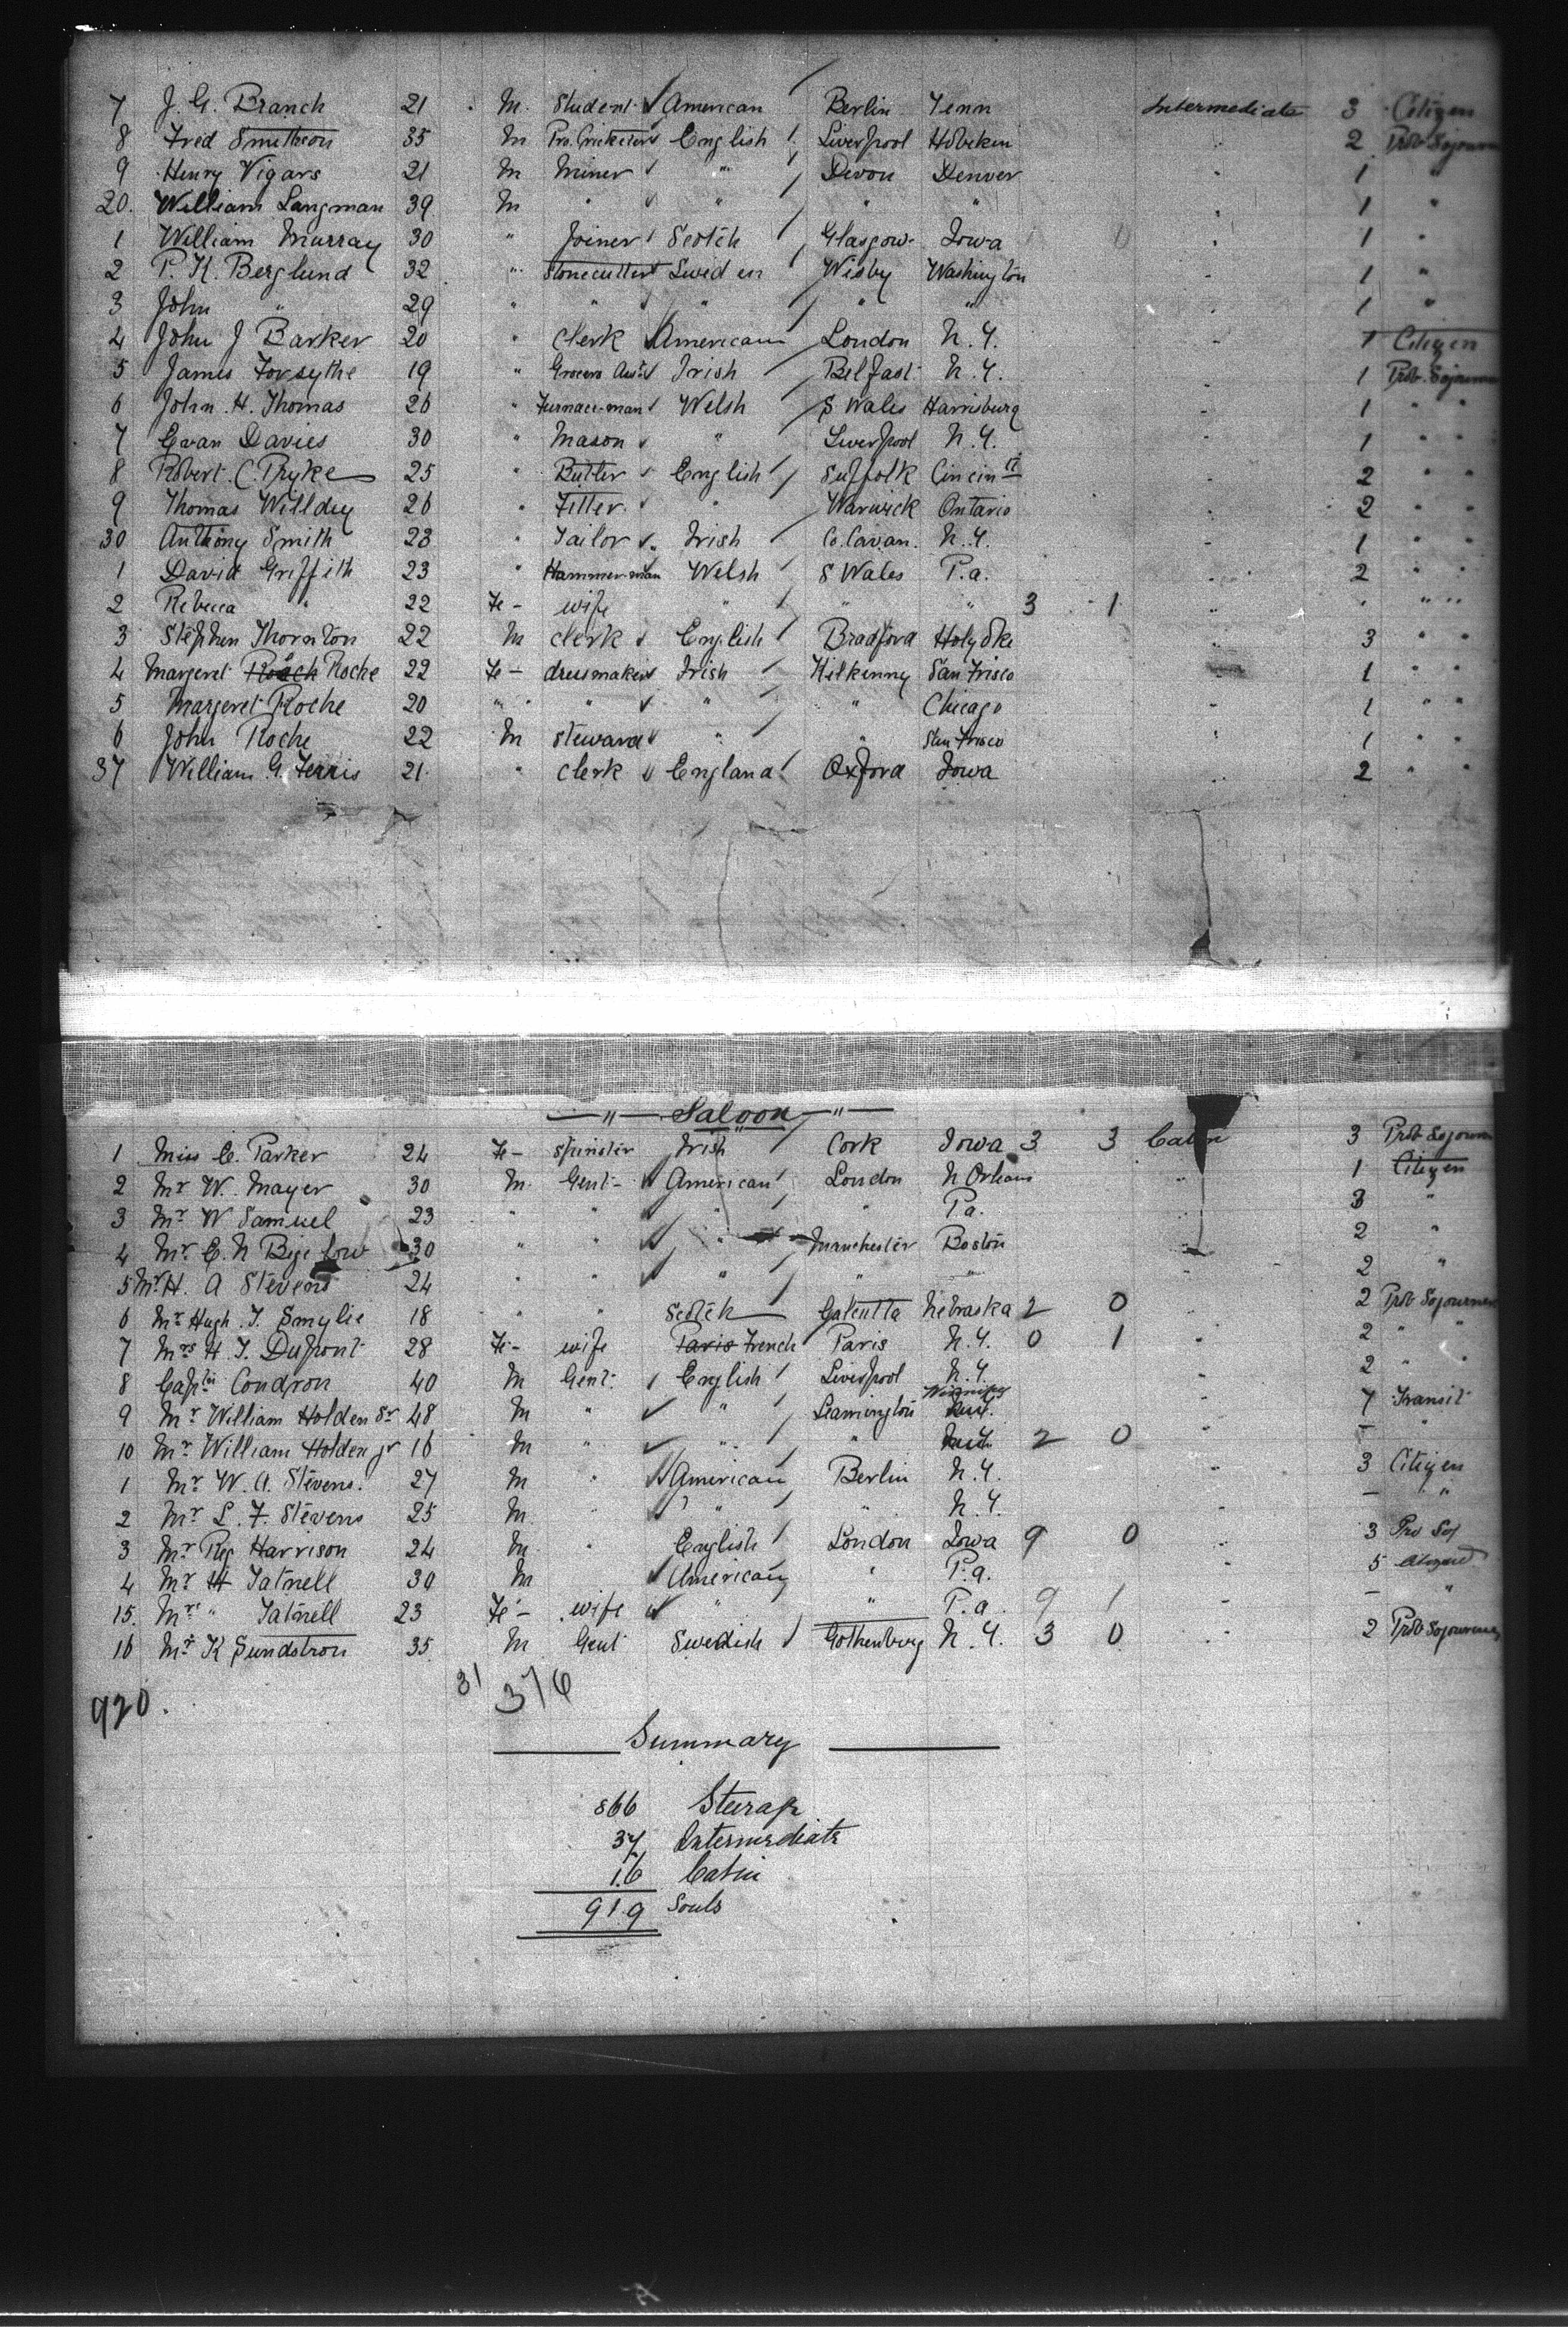 7 J. G. Branch 21 M. Student American Berlin Tenn Intermediate 3 Citizen
8 Fred Smithson 35 M Pro. Cricketer English Liverpool Hoboken 2 Prob Sojourn
9 Henry Vigars 21 M Miner " Devon Denver 1 "
20. William Langman 39 M " " " " 1 "
1 William Murray 30 " Joiner Scotch Glasgow Iowa 0 1 "
2 P. K. Berglund 32 " Stonecutter Sweden Wisby Washington 1 "
3 John " 29 " " " " " 1 "
4 John J Barker 20 " Clerk American London N.Y. 1 Citizen
5 James Forsythe 19 " Grocers Asst Irish Belfast N.Y. 1 Prob. Sojourn
6 John. H. Thomas 26 " Furnace-man Welsh S Wales Harrisburg 1 " "
7 Evan Davies 30 " Mason " Liverpool N.Y. 1 " "
8 Robert. C. Pryke 25 " Butler English Suffolk Cincin 2 " "
9 Thomas Willdey 26 " Fitter " Warwick Ontario 2 " "
30 Anthony Smith 23 " Tailor Irish Co. Cavan. N.Y. 1 " "
1 David Griffith 23 " Hammer-man Welsh S Wales P.a. 2 " "
2 Rebecca " 22 Fe - wife " " " 3 1 " " "
3 Stephen Thornton 22 M Clerk English Bradford Holyoke 3 " "
4 Margeret Roach Roche 22 Fe - dressmaker Irish Kilkenny San Frisco 1 " "
5 Margeret Roche 20 " " " " " Chicago 1 " "
6 John Roche 22 M Steward " " San Frisco 1 " "
37 William G. Ferris 21 " Clerk England Oxford Iowa 2 " "
— " — Saloon — " —
1 Miss C. Parker 24 Fe - Spinster Irish Cork Iowa 3 3 Cabin 3 Prob Sojourn
2 Mr W. Mayer 30 M. Gent - American London N Orleans 1 Citizen
3 Mr W Samuel 23 " " " " Pa. 3 "
4 Mr. E. N Bigelow 30 " " " Manchester Boston 2 "
5 Mr H. A Stevens 24 " " " " " 2 "
6 Mr Hugh. T. Smylie 18 " " Scotch Calcutta Nebraska 2 0 2 Prob Sojourner
7 Mrs H T. DuPont 28 Fe - wife Paris French Paris N.Y. 0 1 2 " "
8 Captn Condron 40 M Gent. English Liverpool N.Y. 2 " "
9 Mr William Holden Sr 48 M " " Leamington Winnipeg 7 Transit
10 Mr William Holden jr 16 M " " " 2 0 - "
1 Mr W. A. Stevens. 27 M " American Berlin N.Y. 3 Citizen
2 Mr L. F. Stevens 25 M. " " " N.Y. - "
3 Mr Reg Harrison 24 M " English London Iowa 9 0 3 Pro Soj
4 Mr H Tatnell 30 M American " P.a. 5
15. Mrs " Tatnell 23 Fe - wife " " P.a. 9 1 - "
16 Mr K Sundstron 35 M Gent Swedish Gothenburg N.Y. 3 0 2 Prob Sojourner
31 376
920.
Summary
866 Steerage
37 Intermediate
16 Cabin
919 Souls